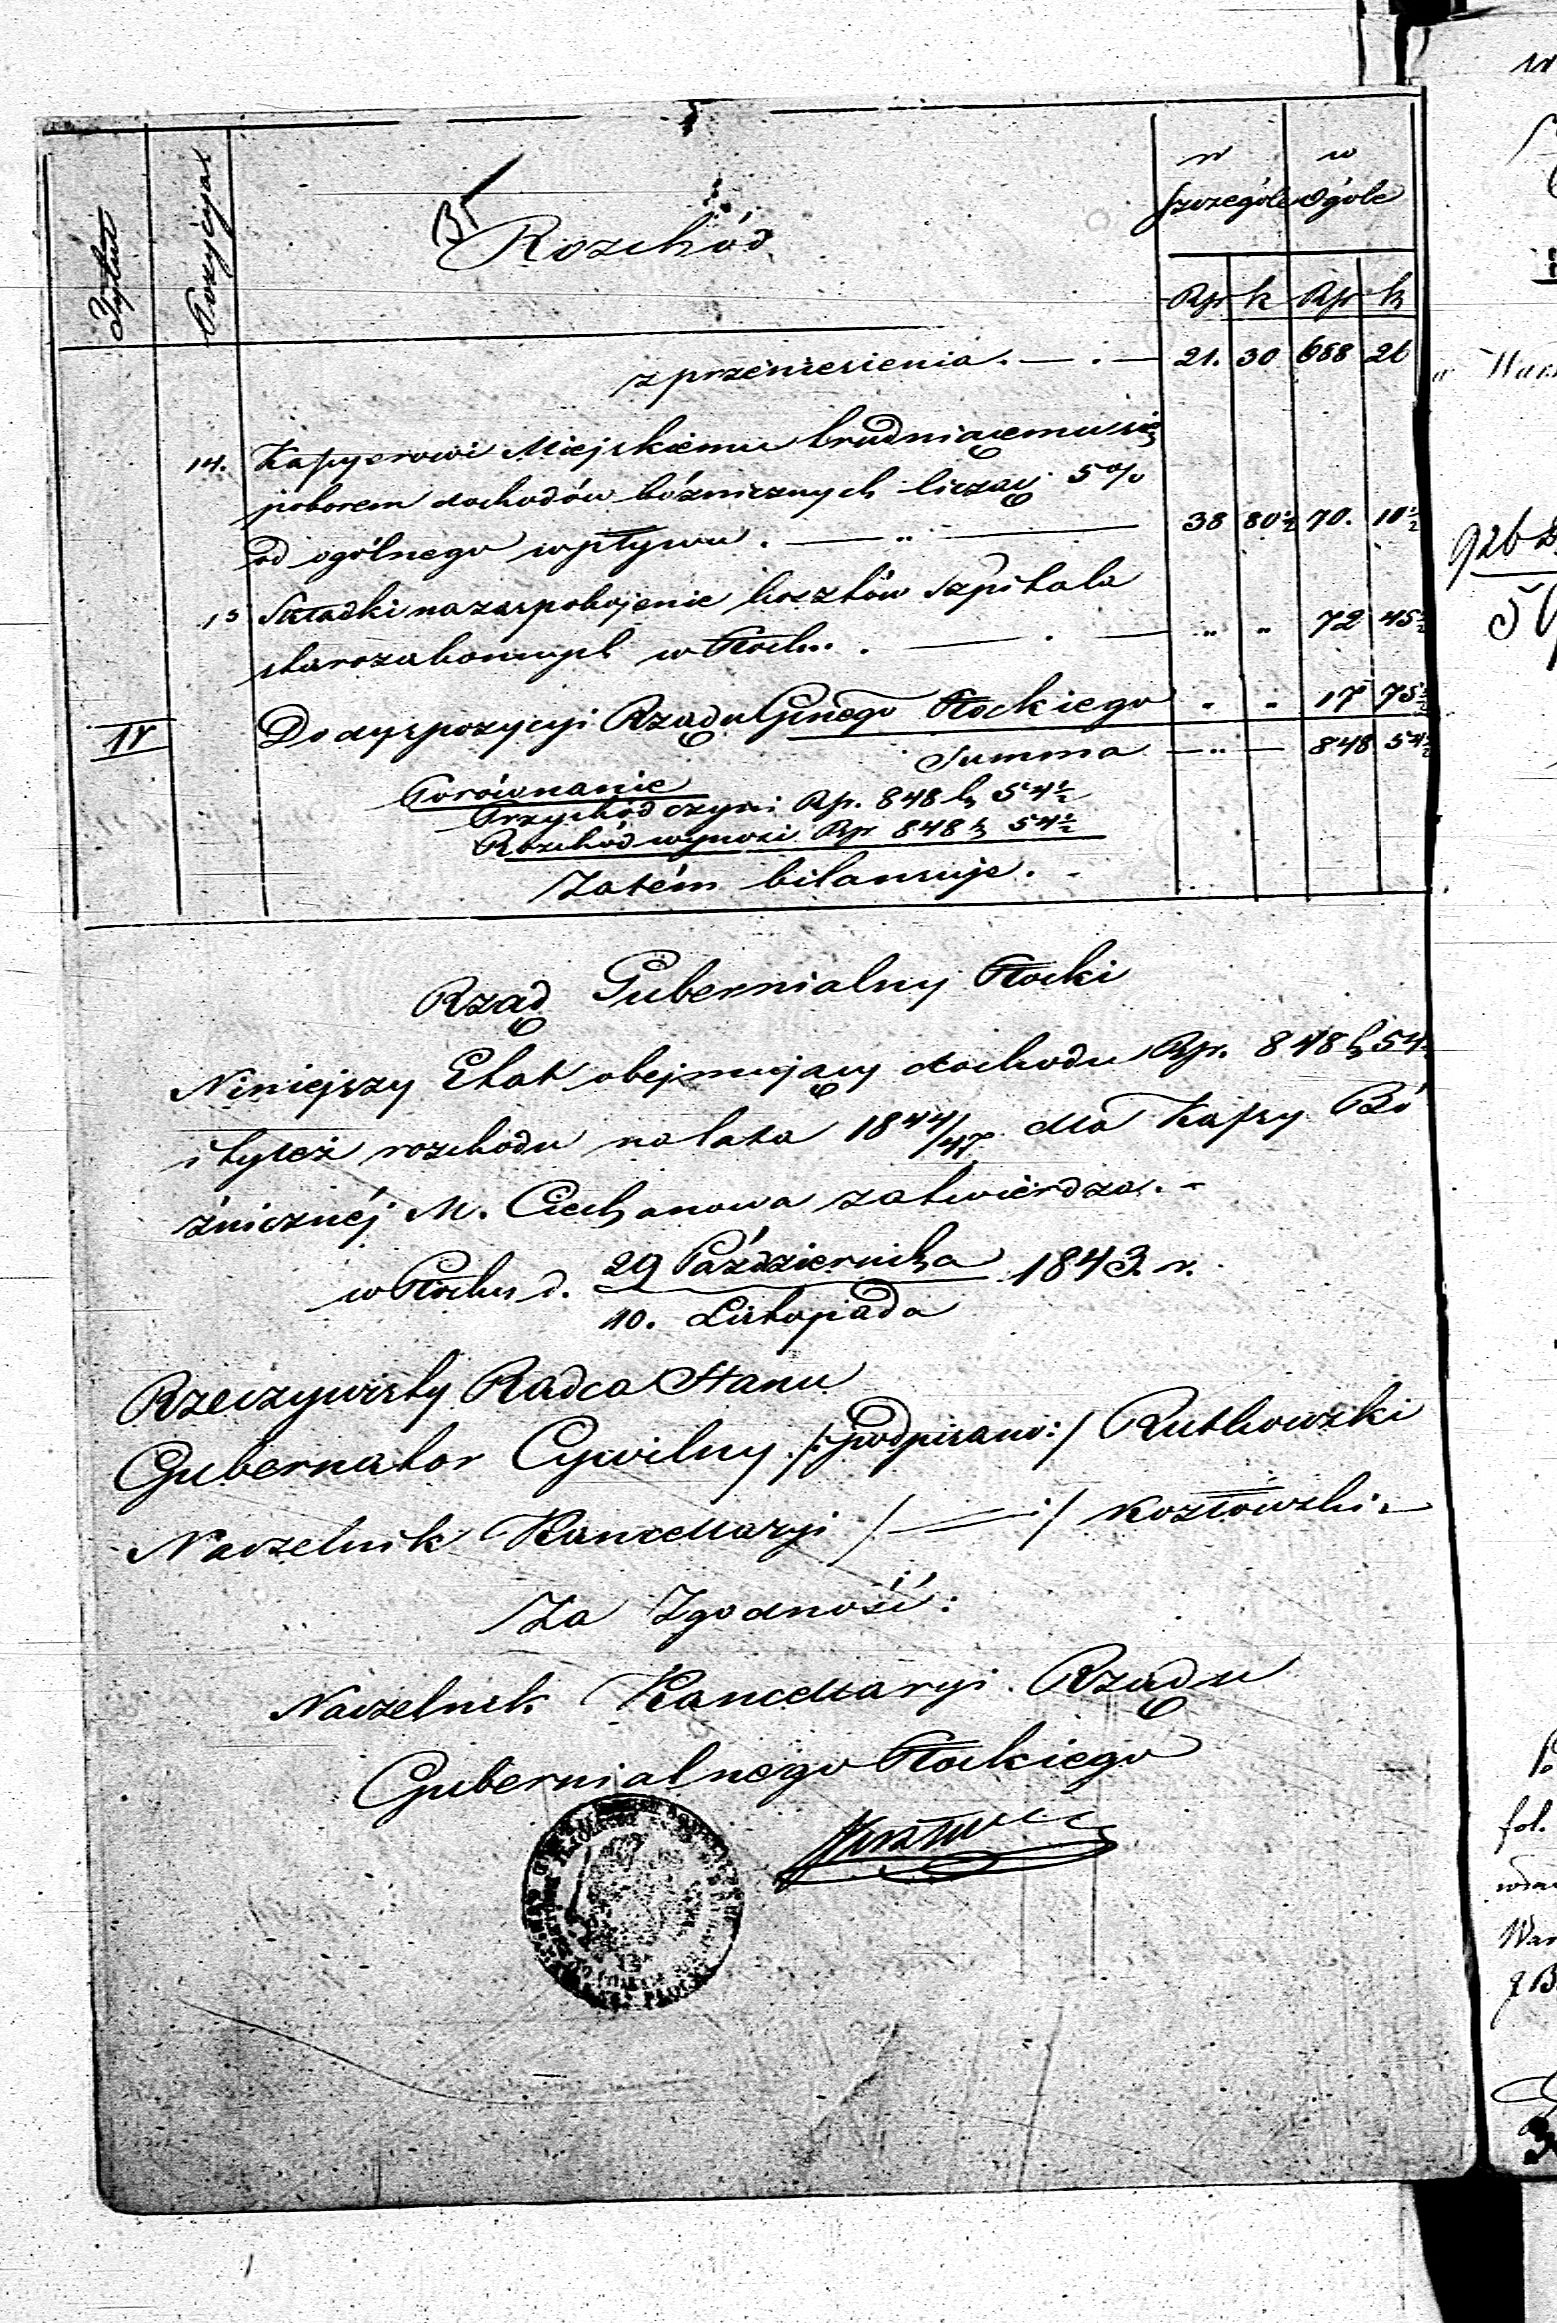 Tytuł
Pozycya
Rozchód
w szczególe
w ogóle
Rsr k Rsr k
z przeniesienia . — . — 21. 30 688 26
14. Kassyerowi Miejskiemu trudniącemu się
poborem dochodów bóżnicznych licząc 5%
od ogólnego wpływu . — „ — 38 80½ 70. 10½
15 Składki na zaspokojenie kosztów Szpitala
starozakonnych w Płocku . — . — „ „ 72 45½
IV Do dyspozycyi Rządu Gnego Płockiego „ „ 17 75½
Summa — „ — 848 54½
Porównanie
Przychód czyni Rsr. 848 k 54½
Rozchód wynosi Rsr 848 k 54½
Zatém bilansuje. -
Rząd Gubernialny Płocki
Niniejszy Etat obejmujący dochodu Rsr. 848 k 54
i tyleż rozchodu na lata 1844/47. dla Kassy Bó
źnicznéj M. Ciechanowa zatwierdza. -
w Płocku d. 29 Października 1843. r.
10. Listopada
Rzeczywisty Radca Stanu
Gubernator Cywilny /:podpisano:/ Rutkowski
Naczelnik Kancellaryi /:—:/ Kozłowski -
Za Zgodność:
Naczelnik Kancellaryi Rządu
Gubernialnego Płockiego